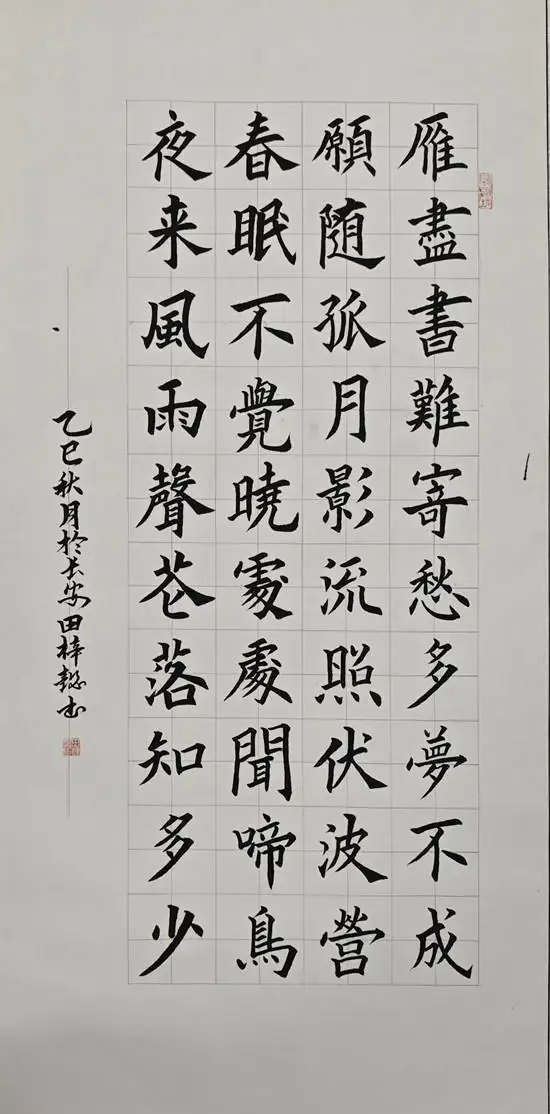 雁盡書難寄愁多夢不成
願随孤月影流照伏波營
春眠不覺曉處處聞啼鳥
夜来風雨聲花落知多少
乙巳秋月於长安田梓懿书